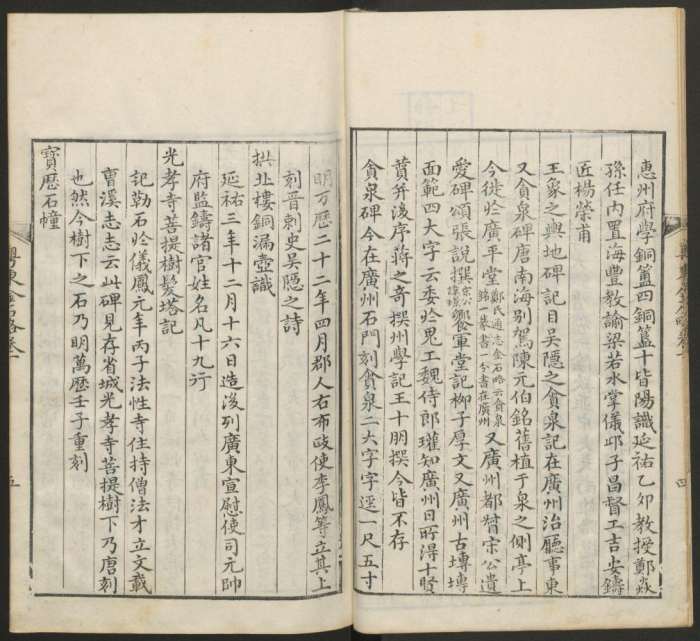 惠州府學銅簠四銅簋十皆陽識延祐乙卯教授鄭焱
孫任內置海豐教諭梁若水掌儀邱子昌督工吉安鑄
匠楊榮甫
王象之輿地碑記目吳隱之貪泉記在廣州治廳事東
又貪泉碑唐南海別駕陳元伯銘舊植于泉之側亭上
今徙於廣平堂鄭氏通志金石略云貪泉銘一篆書一分書在廣州又廣州都督宋公遺
愛碑頌張說撰宋公諱璟饗軍堂記柳子厚文又廣州古塼塼
面範四大字云委於鬼工魏侍郎瓘知廣州日所得十賢
贊并後序蔣之奇撰州學記王十朋撰今皆不存
貪泉碑今在廣州石門刻貪泉二大字字逕一尺五寸
明万歷二十二年四月郡人右布政使李鳳等立其上
刻晉刺史吳隱之詩
拱北樓銅漏壺識
延祐三年十二月十六日造後列廣東宣慰使司元帥
府監鑄諸官姓名凡十九行
光孝寺菩提樹髮塔記
記勒石於儀鳳元年丙子法性寺住持僧法才立文載
曹溪志志云此碑見存省城光孝寺菩提樹下乃唐刻
也然今樹下之石乃明萬歷壬子重刻
寶歷石幢
粵東金石略卷一
五
四